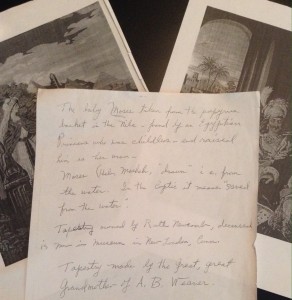 The baby Moses taken from the papyrus
basket in the Nile - found by an Egyptian
Princess who was childless - and raised
him as her own.
Moses (Heb. Mosheh, "drawn" i.e. from
the water. In the Coptic it means "saved
from the water"
Tapestry owned by Ruth
is now in Museum in New London, Conn.
Tapestry made by the great, great
grandmother of A. B. Weaver